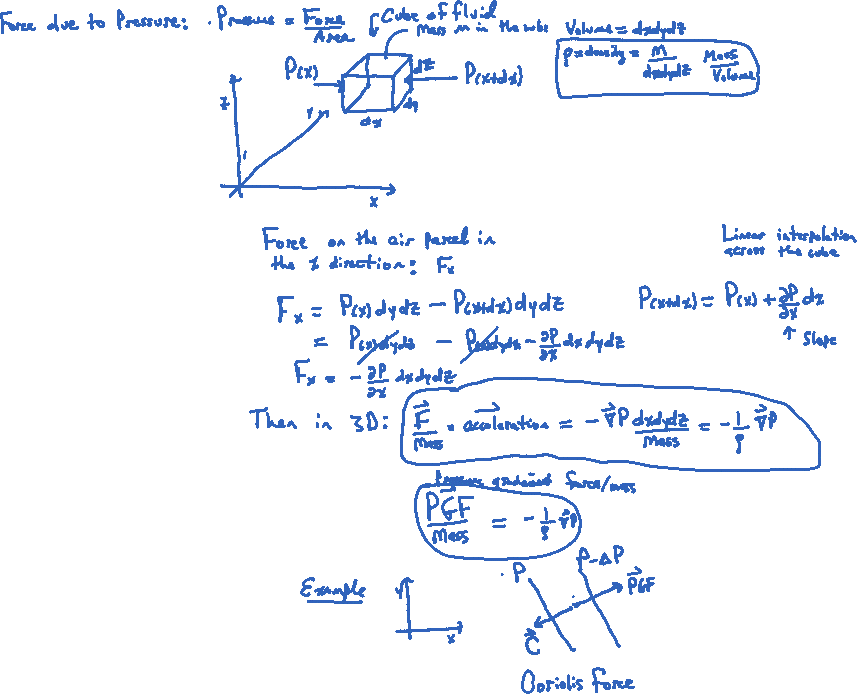 Force due to Pressure: . Pressure = Force/Area
Cube of fluid
Mass m in the cube
Volume = dxdydz
ρ = density = M/dxdydz Mass/Volume
P(x)
P(x+dx)
dz
dy
dx
z
Y
x
Force on the air parcel in
the x direction: Fx
Linear interpolation
across the cube
Fx = P(x) dydz - P(x+dx) dydz
P(x+dx) = P(x) + ∂P/∂x dx
= P(x)dydz - P(x)dydz - ∂P/∂x dxdydz
↑ Slope
Fx = - ∂P/∂x dxdydz
Then in 3D: F⃗/Mass = acceleration = - ∇⃗P dxdydz/Mass = - 1/ρ ∇⃗P
Pressure gradient force/mass
PGF/Mass = - 1/ρ ∇⃗P
Example
Y
x
. P
P-ΔP
PGF
C⃗
Coriolis Force